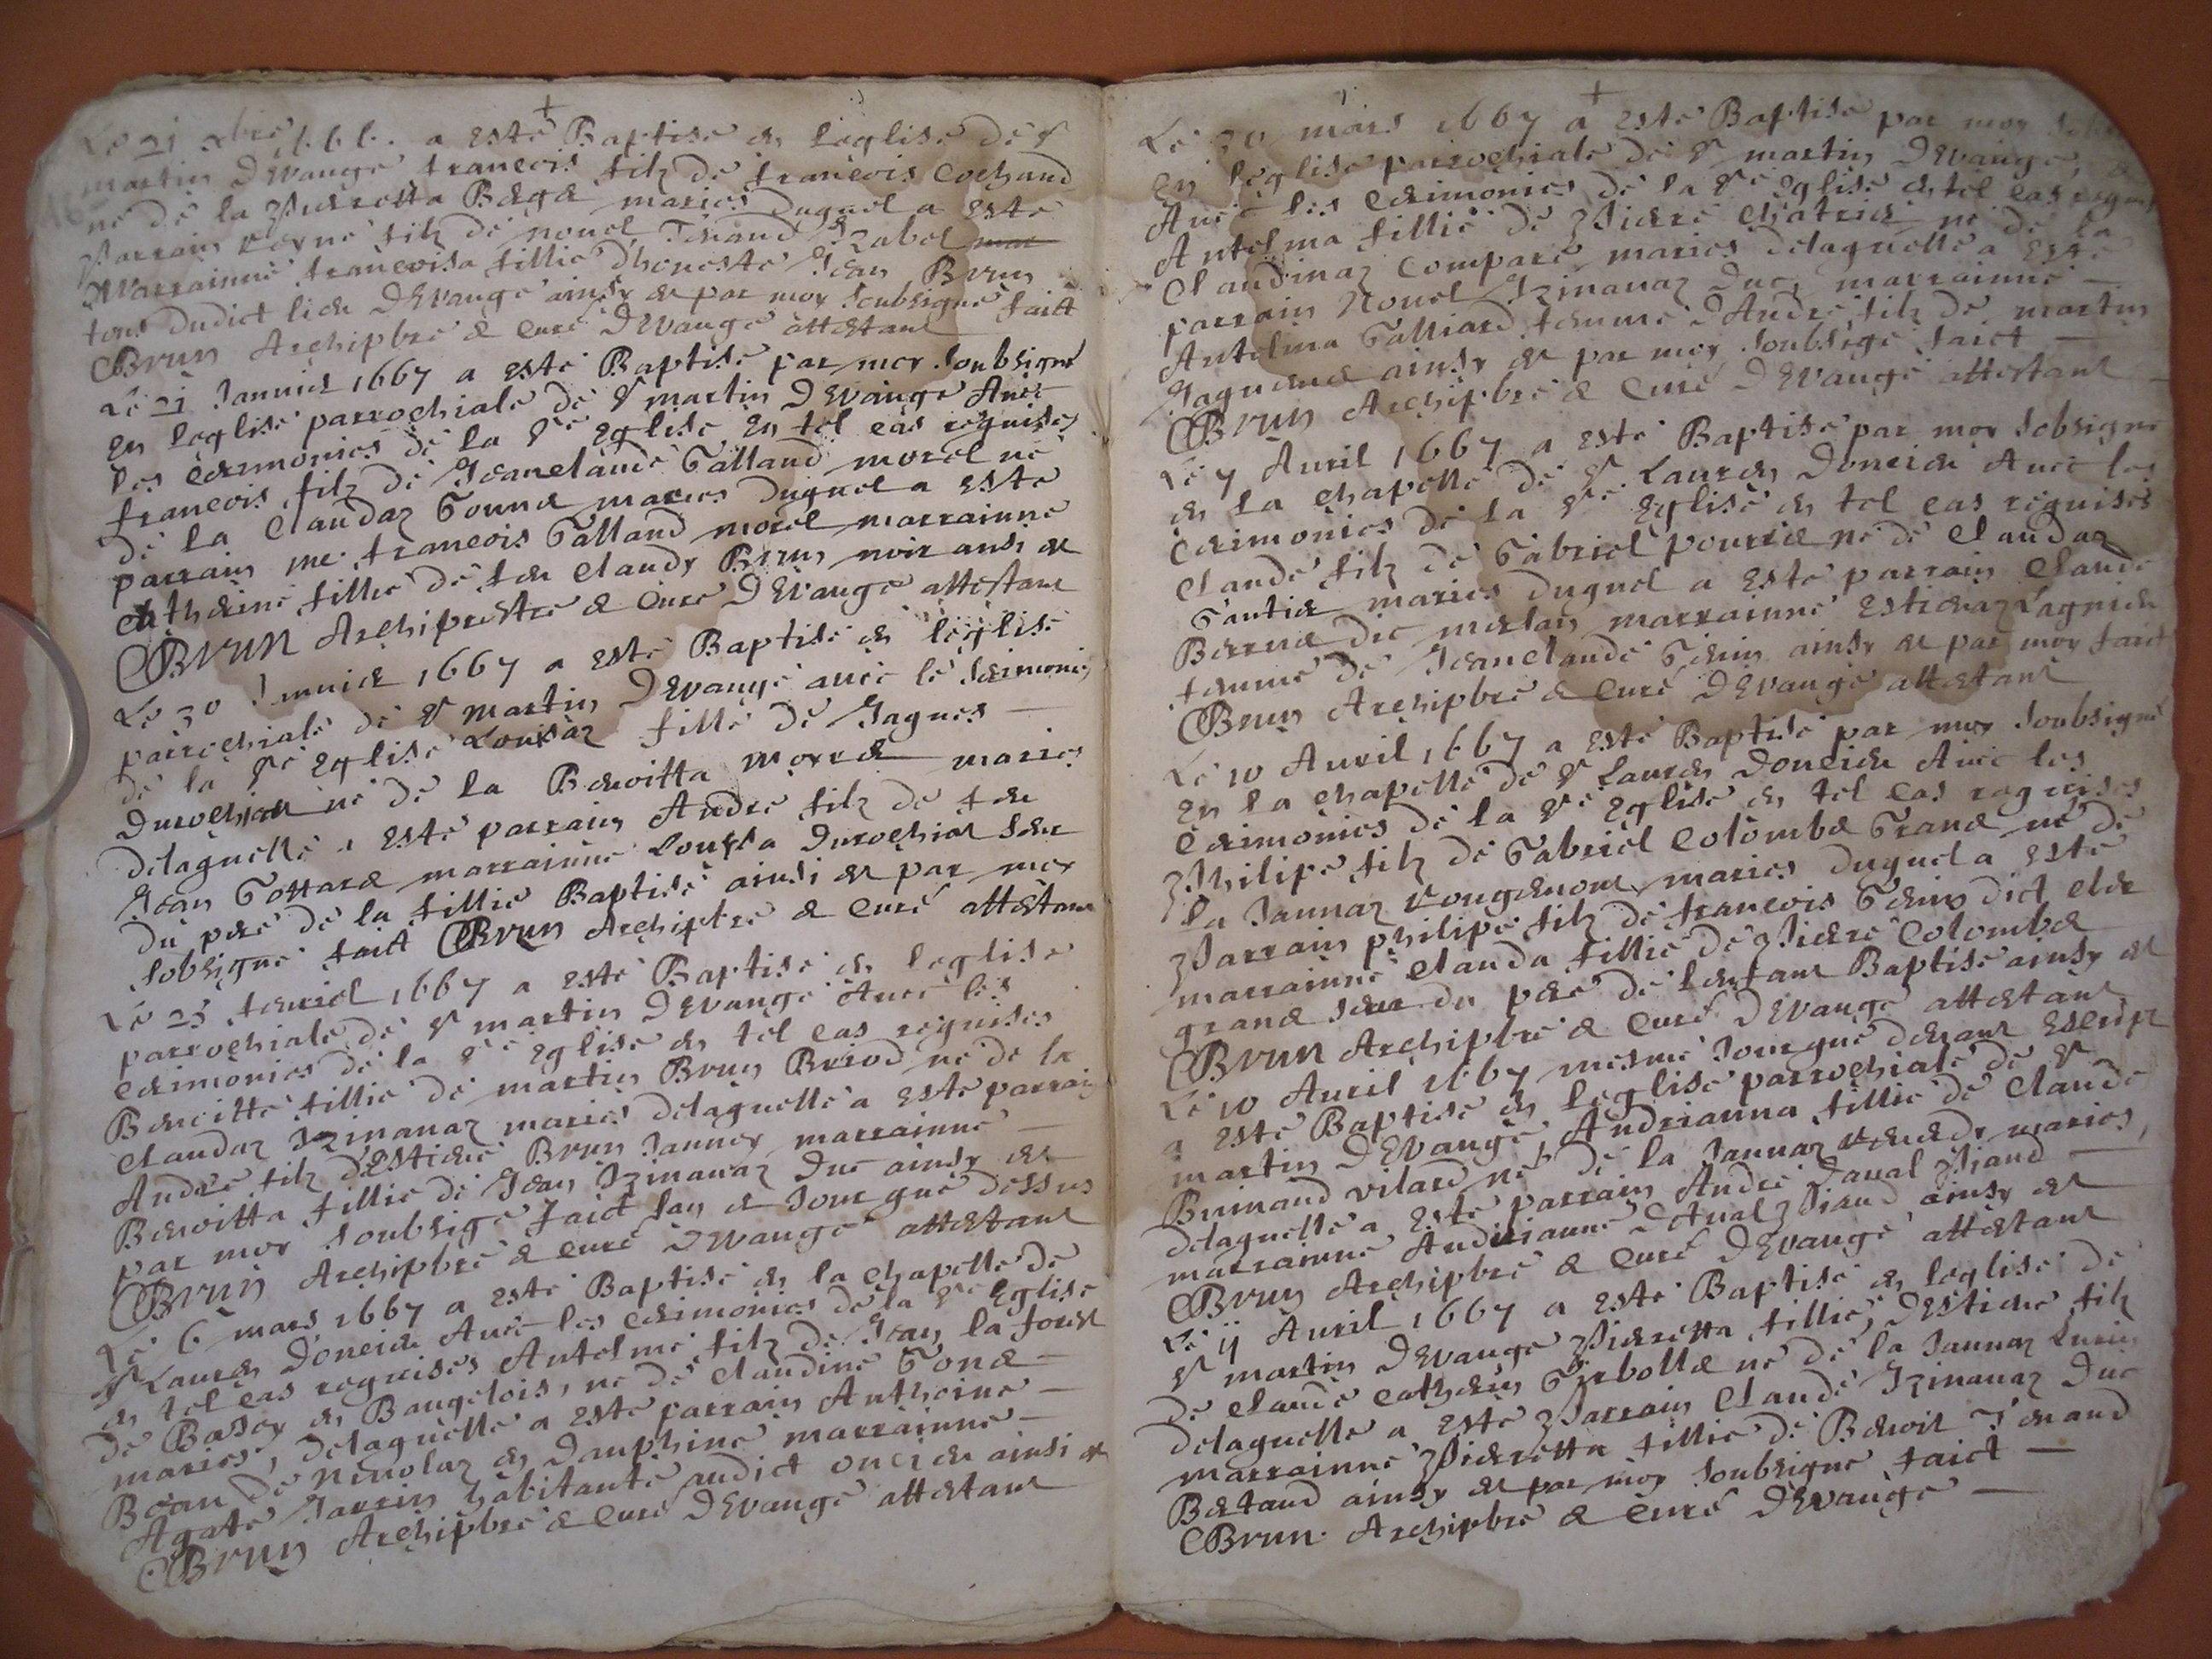 Le 21 xbre 166. a esté Baptisé en leglise de St
martin Devange francois filz de francois Cochand
né de la Pierretta Berge mariés duquel a esté
Parrain filz de nouel Tenand Izabel
Marrainne francoisa fillie dhoneste Jean Brun
tous dudict lieu Devange ainsy est par moy soubsigné faict
Brun Archipbre & curé Devange attestant
Le 21 Janvier 1667 a esté Baptisé par moy soubsigné
en leglise parrochiale de St martin Devange Avec
les cerimonies de la Ste eglise en tel cas requises
francois filz de Jeanclaude Galland morel né
de la Claudaz Gonne mariés duquel a esté
parrain me francois Galland morel marrainne
Catherine fillie de feu Claudy Brun noir ansi est
Brun Archiprestre & Curé Devange attestant
Le 30 Janvier 1667 a esté Baptisé en leglise
parrochiale de St martin Devange avec le serimonies
de la Ste Eglise Louisaz fille de Jaques —
Durochiat né de la Benoitta morre mariés
delaquelle a esté parrain Andre filz de feu
Jean Gottare marrainne Louisa Durochiat seur
du pere de la fillie Baptisé ainsi est par moy
sobsigné faict Brun Archipbre & curé attestant
Le 23 feuriel 1667 a esté Baptisé en leglise
parrochiale de St martin Devange Avec les
cerimonies de la Ste Eglise en tel cas requises
Benoitte fillie de martin Brun Berod né de la
Claudaz Izinanaz mariés delaquelle a esté parrain
Andre filz destiene Brun Janney marrainne —
Benoitta fillie de Jean Izinanaz Duc ainsy est
par moy soubsige faict lan & Jour que dessus
Brun Archipbre & curé Devange attestant
Le 6 mars 1667 a esté Baptisé en la chapelle de
St Lauren Doncieu Avec les cerimonies de la Ste Eglise
en tel cas requises Antelme filz de Jean la forest
de Basey en Baugelois, né de Claudine Gone —
mariés, delaquelle a esté parrain Anthoine —
Bean de Nicolaz en Dauphine marrainne —
Agate Jarrin habitante audict oncieu ainsi est
Brun Archipbre & Curé Devange attestant
Le 30 mars 1667 a esté Baptisé par moy
en leglise parrochiale de St martin Devange,
Avec les cerimonies de la Ste Eglise en tel cas
Antelma fillie de Pierre Chatrie né de la
Claudinaz Compare mariés delaquelle a esté
parrain Nouel Izinanaz Duc, marrainne —
Antelma Galliard femme dAndre filz de martin
Jaquene ainsy est par moy soubsigé faict —
Brun Archipbre & Curé Devange attestant —
Le 7 Auril 1667 a esté Baptisé par moy sobsigné
en la chapelle de St Lauren Doncieu Avec les
cerimonies de la Ste Eglise en tel cas requises
Claude filz de Gabriel pourrie né de Claudaz
Gantie mariés duquel a esté parrain Claude
Berne dic merlan marrainne Estienaz Lagnieu
femme de Jeanclaude Genin ainsy est par moy faict
Brun Archipbre & Curé Devange attestant
Le 10 Auril 1667 a esté Baptisé par moy soubsigné
en la chapelle de St Lauren Doncieu Avec les
cerimonies de la Ste Eglise en tel cas requises
Philipe filz de Gabriel Colombe Grane né de
la Jannaz mariés duquel a esté
Parrain philipe filz de francois Genin dict cler
marrainne Clauda fillie de Pierre Colombe
grane seur du pere de lenfant Baptisé ainsy est
Brun Archipbre & Curé Devange attestant
Le 10 Auril 1667 mesme Jourque deuant Escript
a esté Baptisé en leglise parrochiale de St
martin Devange, Andrianna fillie de Claude
Buinand vilard né de la Jannaz mariés,
delaquelle a esté parrain André Daval Piand —
marrainne Andrianne Daval Piand ainsy est
Brun Archipbre & Curé Devange attestant
Le 11 Auril 1667 a esté Baptisé en leglise de
St martin Devange Pierretta fillie, destiene filz
de Claude Cathelin Girbolle né de la Jannaz
delaquelle a esté Parrain Claude Izinanaz Duc
marrainne Pierretta fillie de Benoit Tenand
Bertand ainsy est par moy soubsigné faict —
Brun Archipbre & curé Devange —